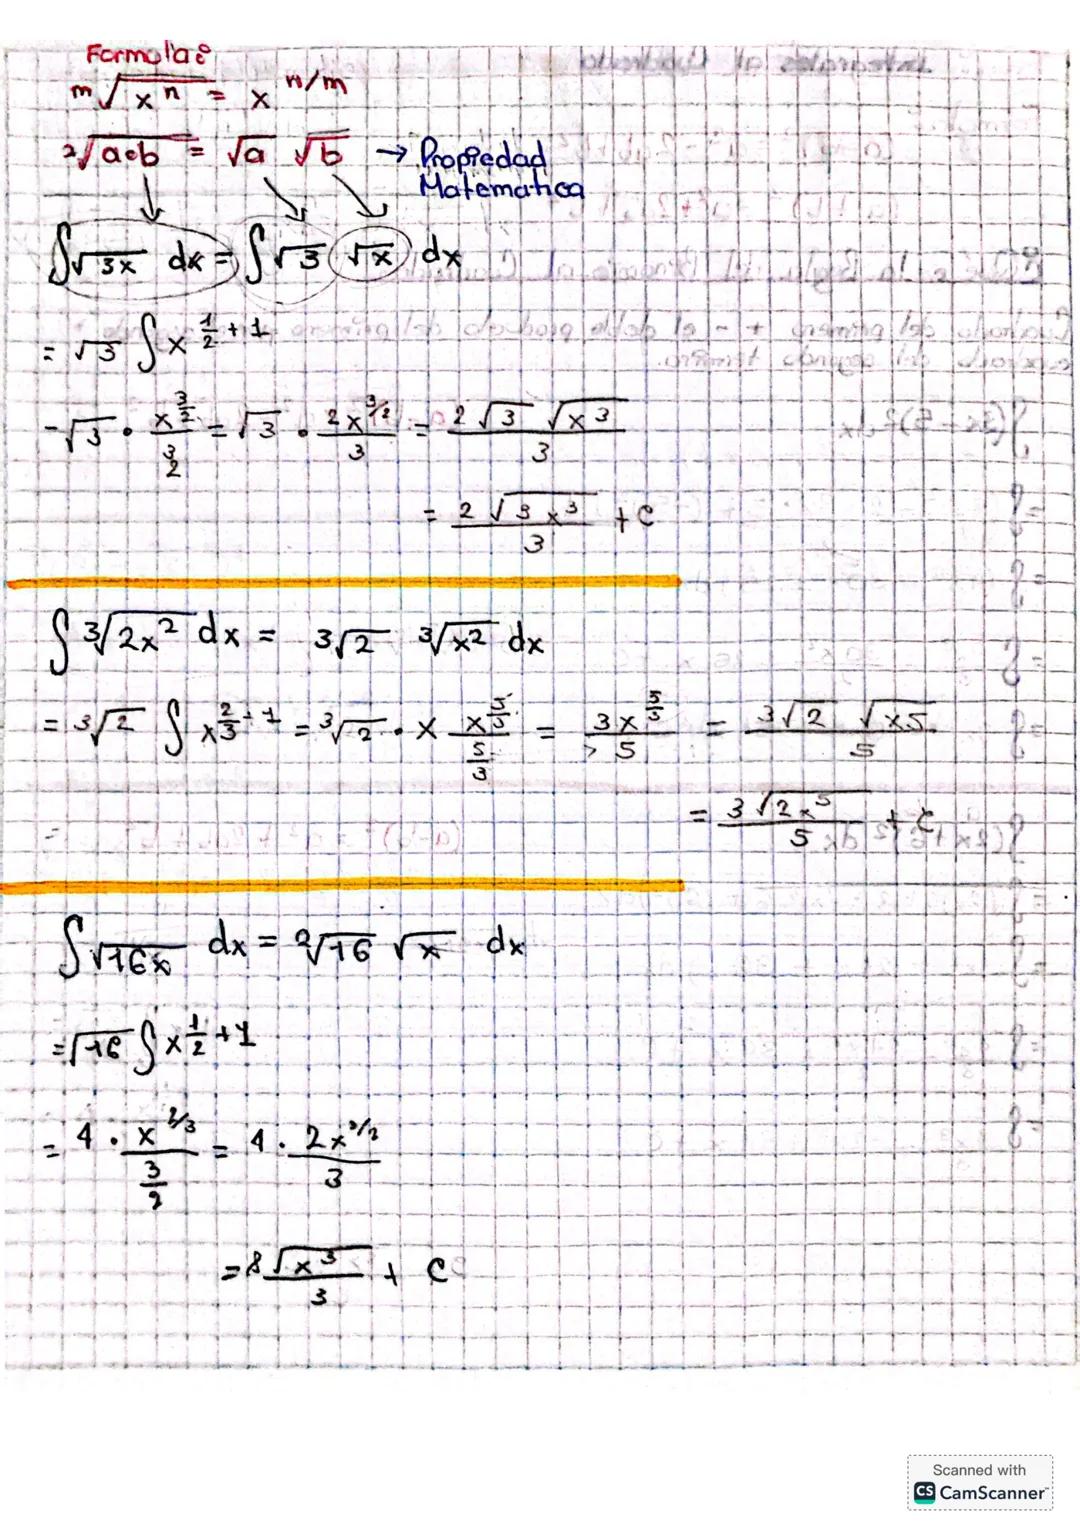 Formula:
m√x^n = x^n/m
2√a·b = √a √b → Propiedad
Matematica
∫√3x dx = ∫√3 √x dx
= √3 ∫ x^1/2 + 1
= √3 · x^3/2 / 3/2 = √3 · 2x^3/2 / 3 = 2 √3 √x3 / 3
= 2 √3x^3 / 3 + c
∫ 3√2x^2 dx = 3√2 3√x2 dx
= 3√2 ∫ x^2/3 + 1 = 3√2 · x x^5/3 / 5/3 = 3x^5/3 / 5 = 3√2 √x5 / 5
= 3√2x^5 / 5 + c
∫√16x dx = 2√16 √x dx
= √16 ∫ x^1/2 + 1
= 4 · x^2/3 / 3/2 = 4 · 2x^3/2 / 3
= 8√x^3 / 3 + c
Scanned with
CS CamScanner